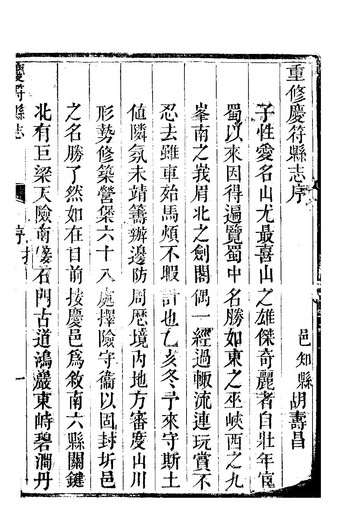 重修慶符縣志序
邑知縣胡壽昌
予性愛名山尤最喜山之雄傑奇麗者自壯年宦
蜀以來因得遍覽蜀中名勝如東之巫峽西之九
峯南之峩眉北之劍閣偶一經過輙流連玩賞不
忍去雖車殆馬煩不暇計也乙亥冬予來守斯土
値隣氛未靖籌辦邊防周歴境内地方審度山川
形勢修築營堡六十八處擇險守備以固封圻邑
之名勝了然如在目前按慶邑爲敘南六縣關鍵
北有巨梁天險南**石門古道鴻巖東峙碧澗丹
慶符縣志
序
一